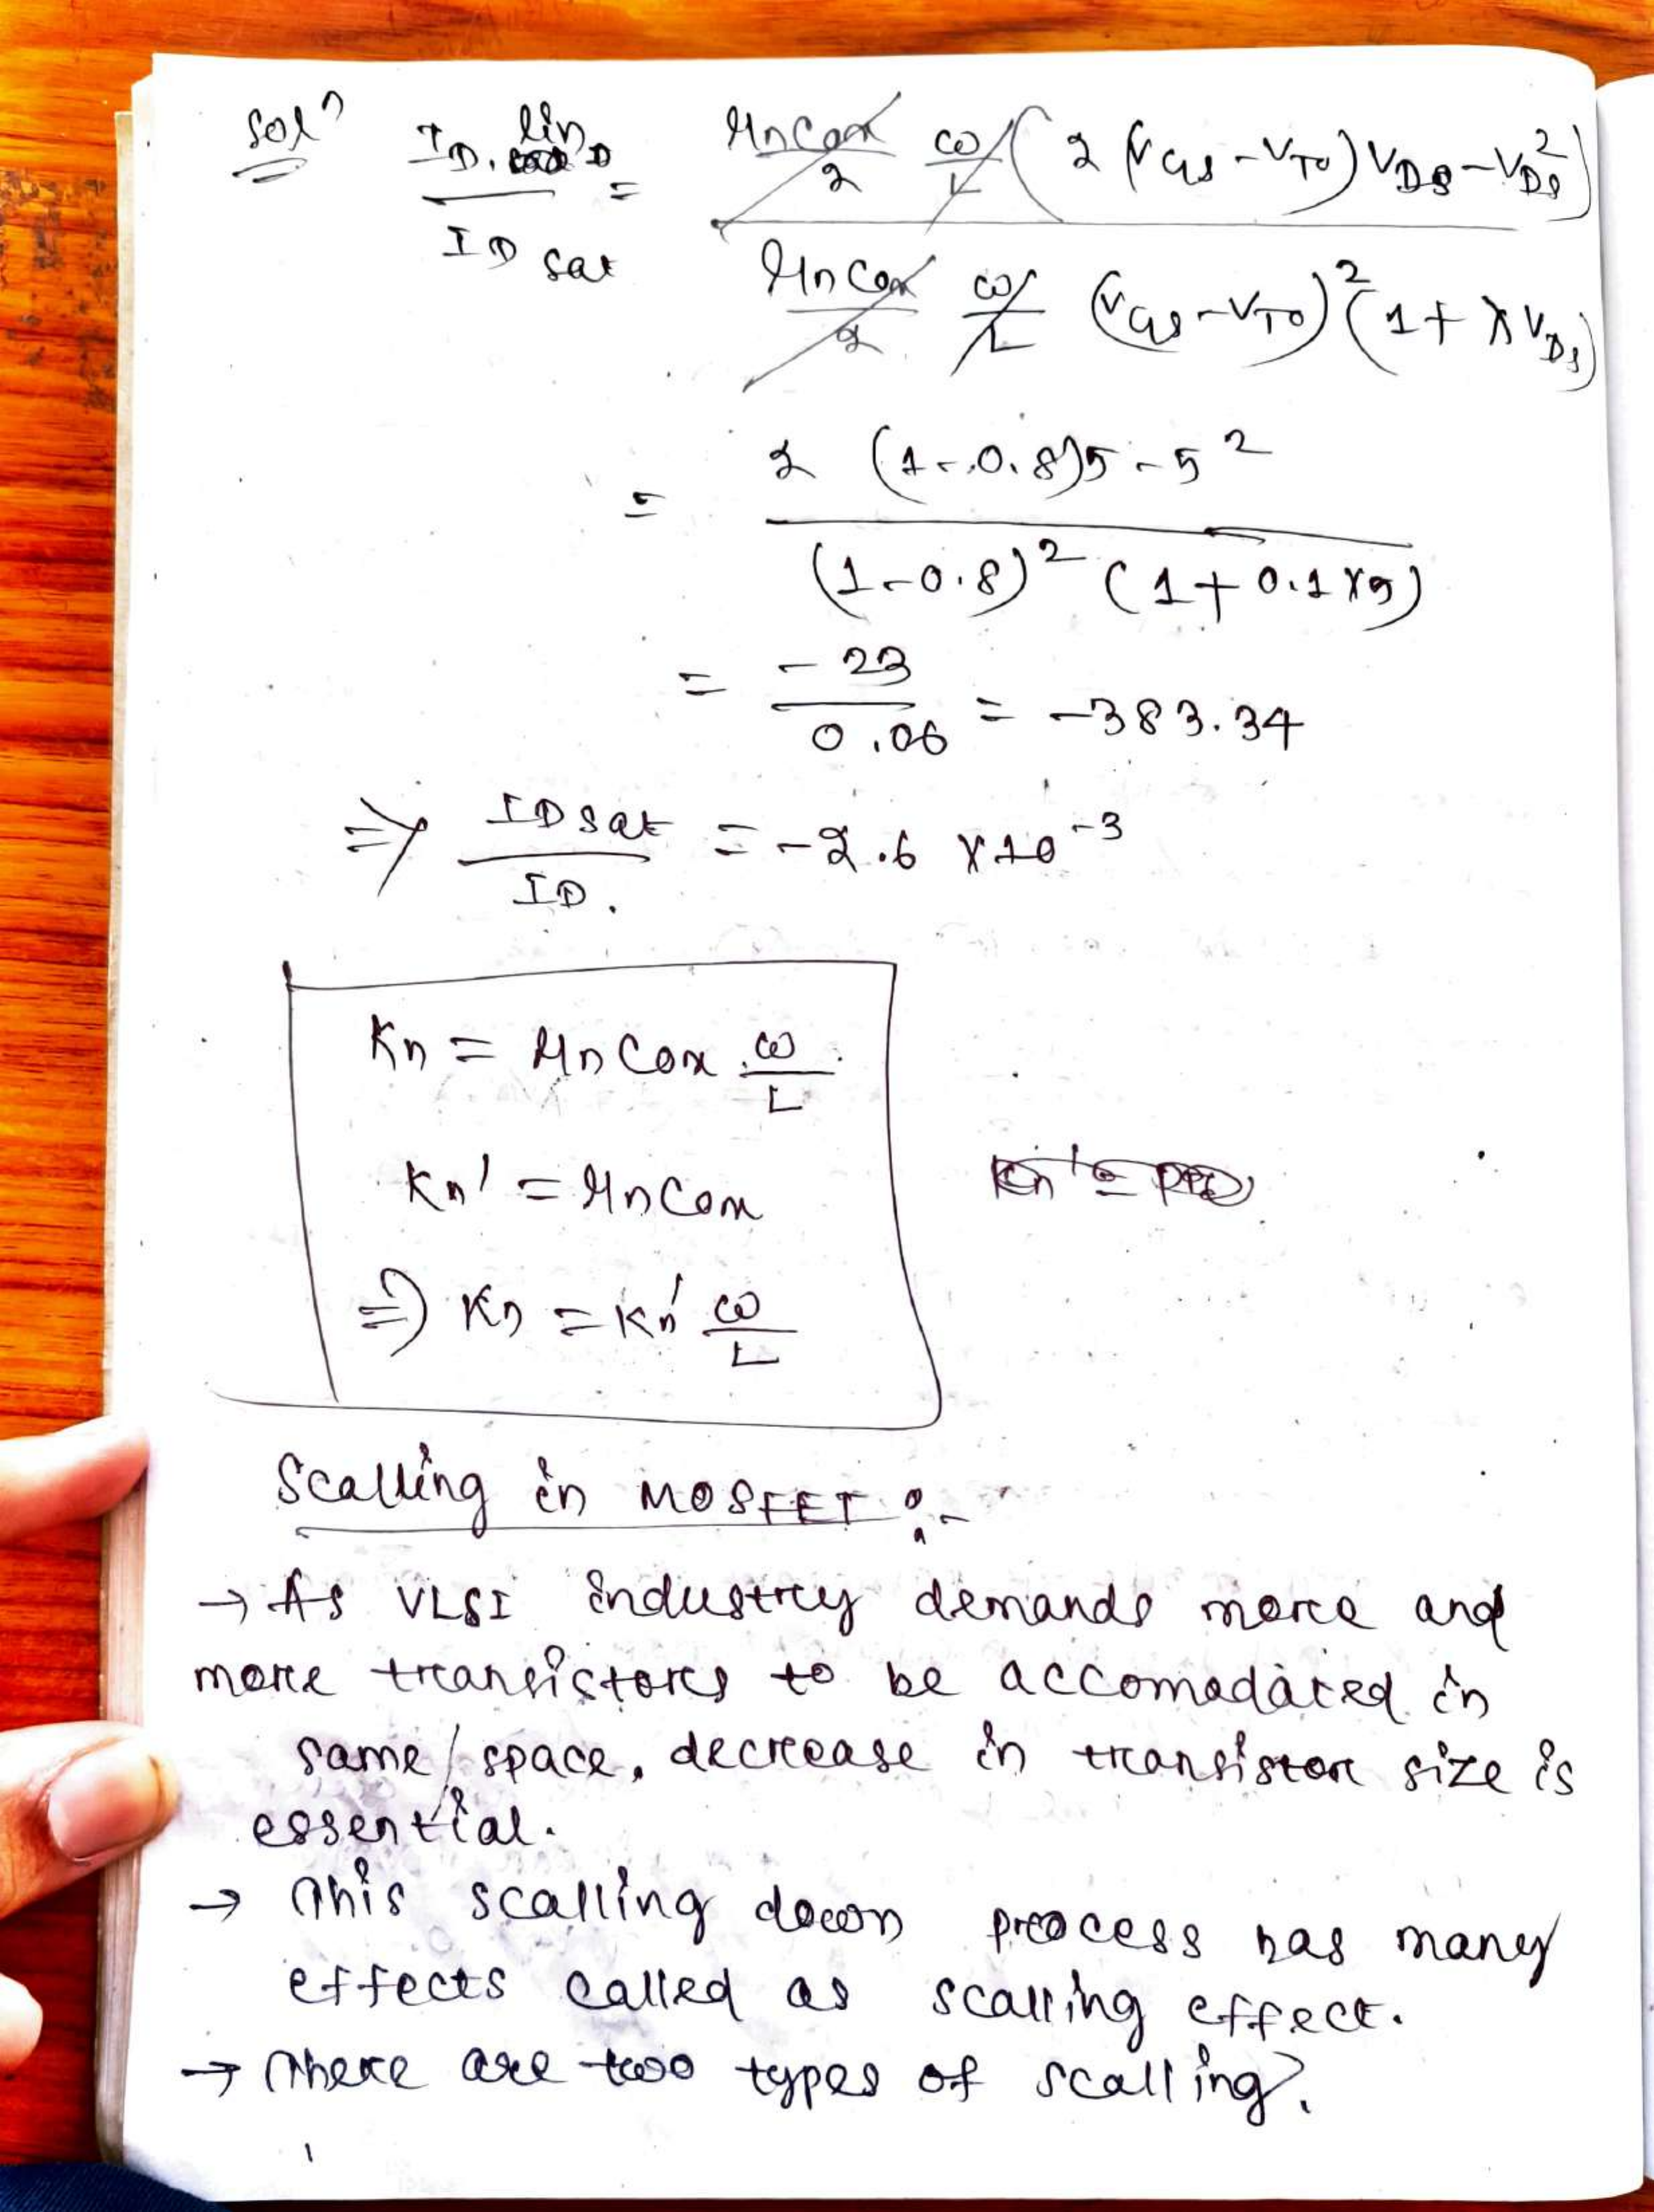 Solⁿ
I_D lin / I_D sat = (μnCox/2 · W/L (2 (V_GS - V_T0) V_DS - V_DS²)) / (μnCox/2 · W/L (V_GS - V_T0)² (1 + λV_DS))
= (2 (1-0.8)5 - 5²) / ((1-0.8)² (1+0.1×5))
= -23 / 0.06 = -383.34
⇒ I_D sat / I_D. = -2.6 × 10⁻³
Kn = μn Cox · W/L
Kn' = μn Cox
⇒ Kn = Kn' W/L
Scalling in MOSFET :-
→ As VLSI industry demands more and
more transistors to be accomadated in
same space, decrease in transistor size is
essential.
→ This scalling down process has many
effects called as scalling effect.
→ There are two types of scalling.